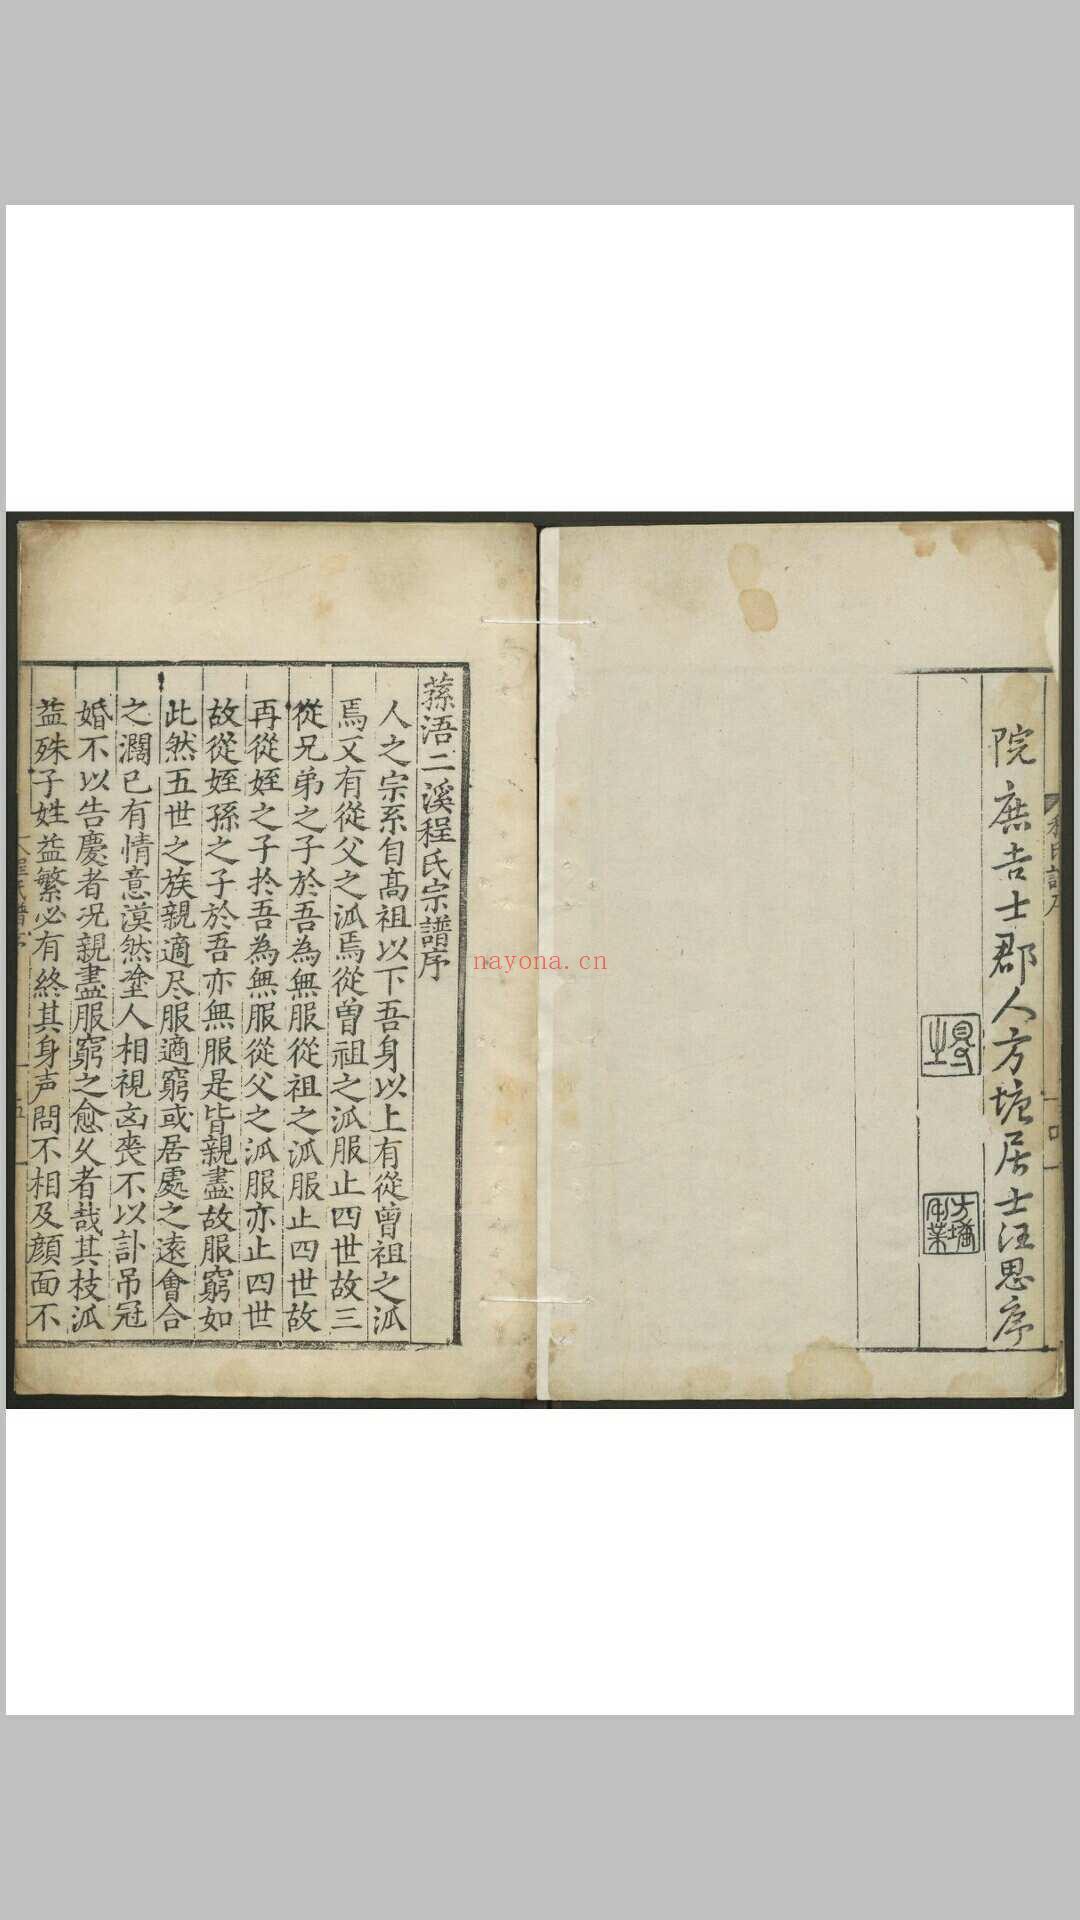 院庶吉士郡人方塘居士汪思序
蓀浯二溪程氏宗譜序
人之宗系自髙祖以下吾身以上有從曾祖之泒
焉又有從父之泒焉從曾祖之泒服止四世故三
從兄弟之子於吾為無服從祖之泒服止四世故
再從姪之子於吾為無服從父之泒服亦止四世
故從姪孫之子於吾亦無服是皆親盡故服窮如
此然五世之族親適尽服適窮或居處之遠會合
之濶已有情意漠然塗人相視凶喪不以訃吊冠
婚不以告慶者况親盡服窮之愈久者哉其枝泒
益殊子姓益繁必有終其身声問不相及顔面不
nayona.cn